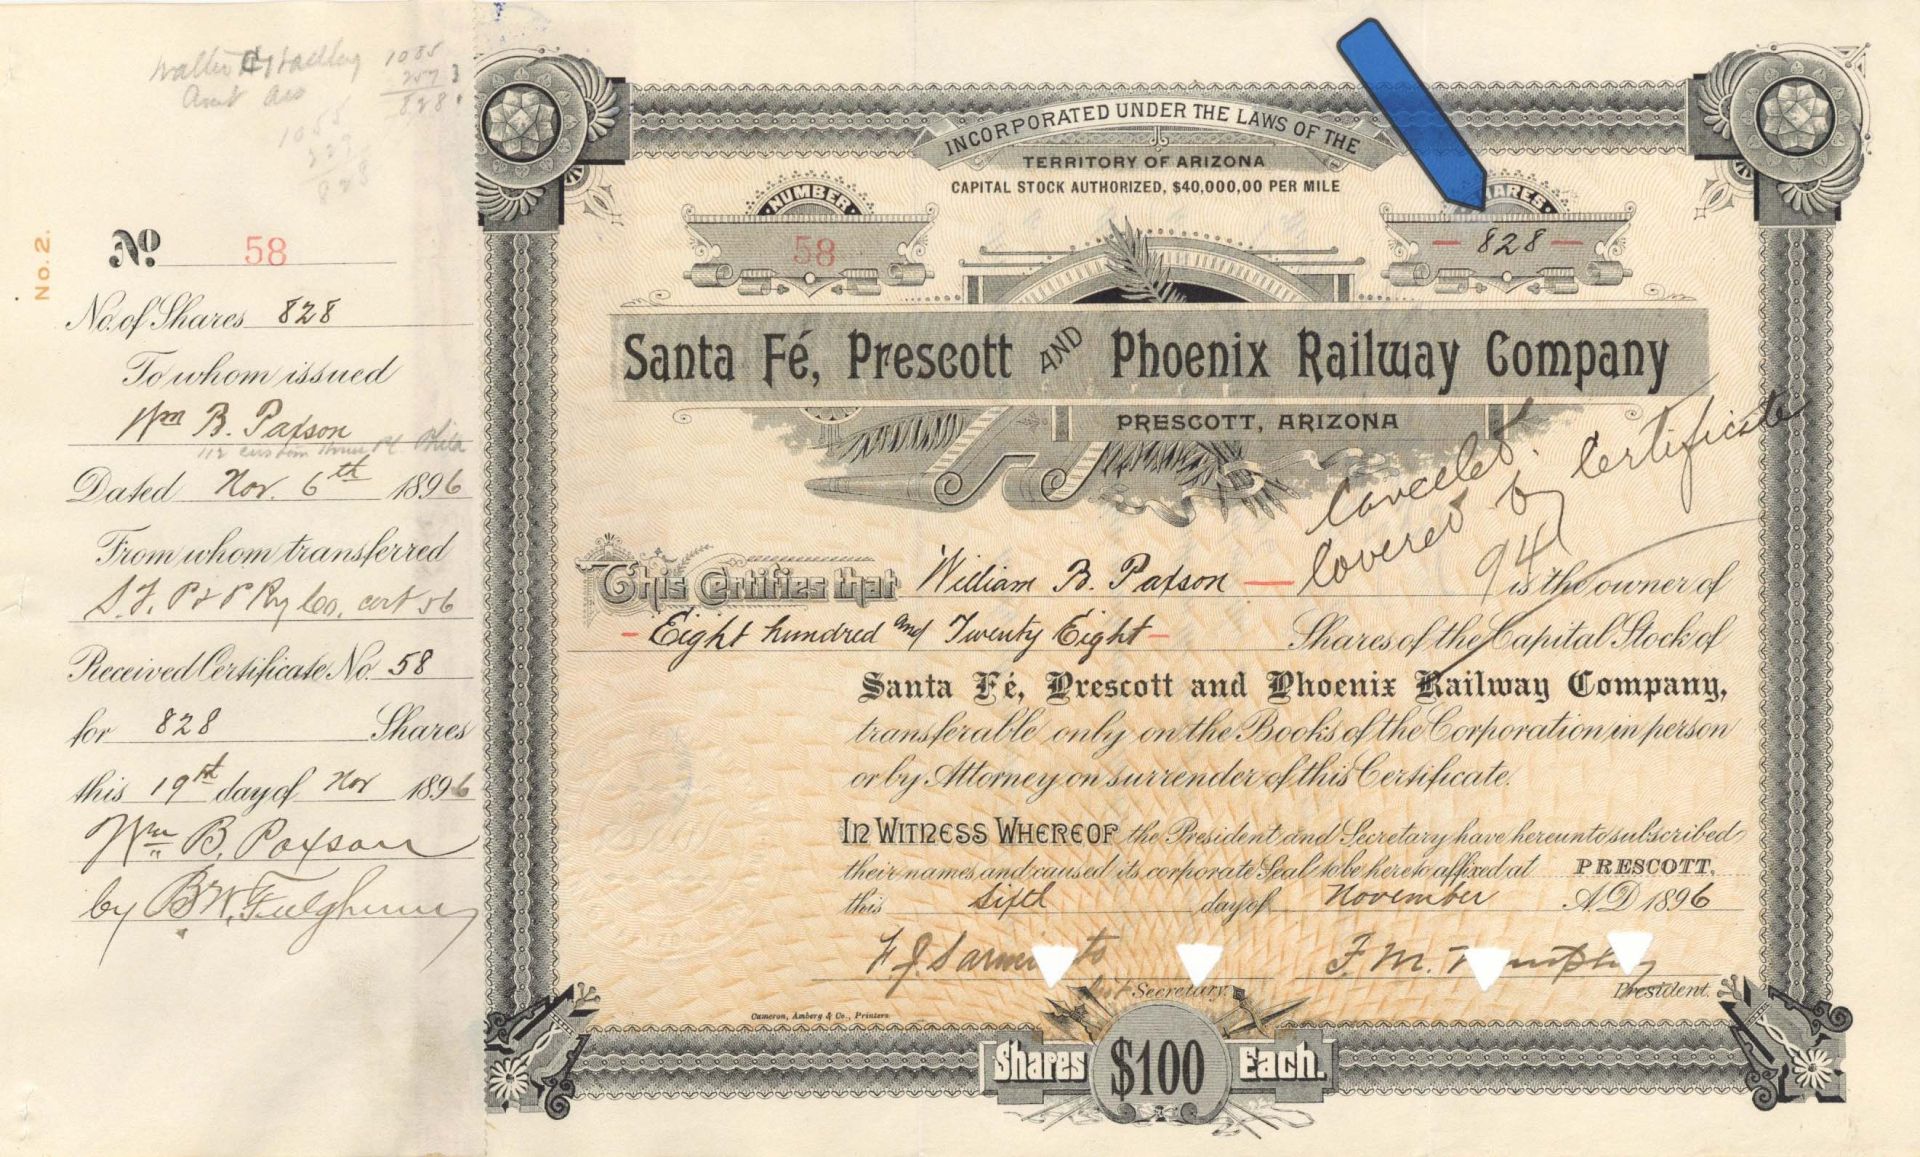 1085
257
828
1085
828
No. 2.
No. 58
No. of Shares 828
To whom issued
Wm B. Paxson
Dated Nov. 6th 1896
From whom transferred
S. F. P & P Ry Co. cert 56
Received Certificate No. 58
for 828 Shares
this 19th day of Nov 1896
Wm B. Paxson
by B W. Fulghum
INCORPORATED UNDER THE LAWS OF THE
TERRITORY OF ARIZONA
CAPITAL STOCK AUTHORIZED, $40,000,00 PER MILE
NUMBER
58
ARES
- 828 -
Santa Fé, Prescott AND Phoenix Railway Company
PRESCOTT, ARIZONA
Cancelled.
Covered by Certificate
94
This Certifies that William B. Paxson — is the owner of
- Eight hundred and Twenty Eight - Shares of the Capital Stock of
Santa Fé, Prescott and Phoenix Railway Company,
transferable only on the Books of the Corporation in person
or by Attorney on surrender of this Certificate.
In Witness Whereof the President and Secretary have hereunto subscribed
their names and caused its corporate Seal to be hereto affixed at PRESCOTT,
this Sixth day of November A.D. 1896
F. M.
Secretary.
President.
Cameron, Amberg & Co., Printers
Shares $100 Each.